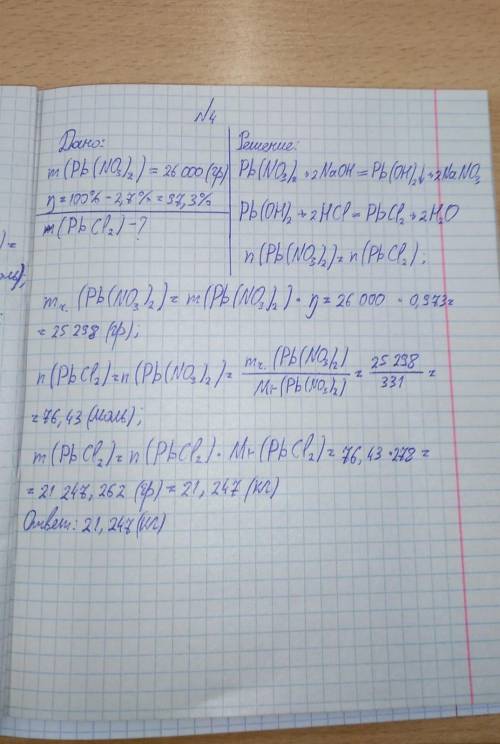 №4
Дано:
m(Pb(NO3)2) = 26 000 (гр)
η = 100% - 2,7% = 97,3%
m(PbCl2) - ?
Решение:
Pb(NO3)2 + 2NaOH = Pb(OH)2↓ + 2NaNO3
Pb(OH)2 + 2HCl = PbCl2 + 2H2O
n(Pb(NO3)2) = n(PbCl2);
mч. (Pb(NO3)2) = m(Pb(NO3)2) · η = 26 000 · 0,973 =
= 25 298 (гр);
n(PbCl2) = n(Pb(NO3)2) = mч. (Pb(NO3)2) / Mr(Pb(NO3)2) = 25 298 / 331 =
= 76,43 (моль);
m(PbCl2) = n(PbCl2) · Mr(PbCl2) = 76,43 · 278 =
= 21 247,262 (гр) = 21,247 (кг)
Ответ: 21,247 (кг)
) =
моль);